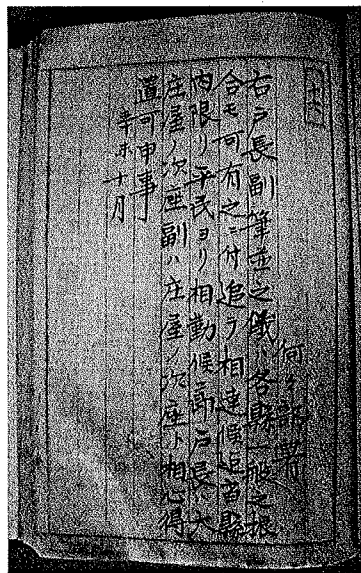 十六
何々誰
右戸長副筆並之儀ハ各縣一般之振
合モ可有之ニ付追テ相達候迄當縣
内限リ平民ヨリ相勤候戸長ハ大
庄屋ノ次座副ハ庄屋ノ次座ト相心得
置可申事
辛未十月